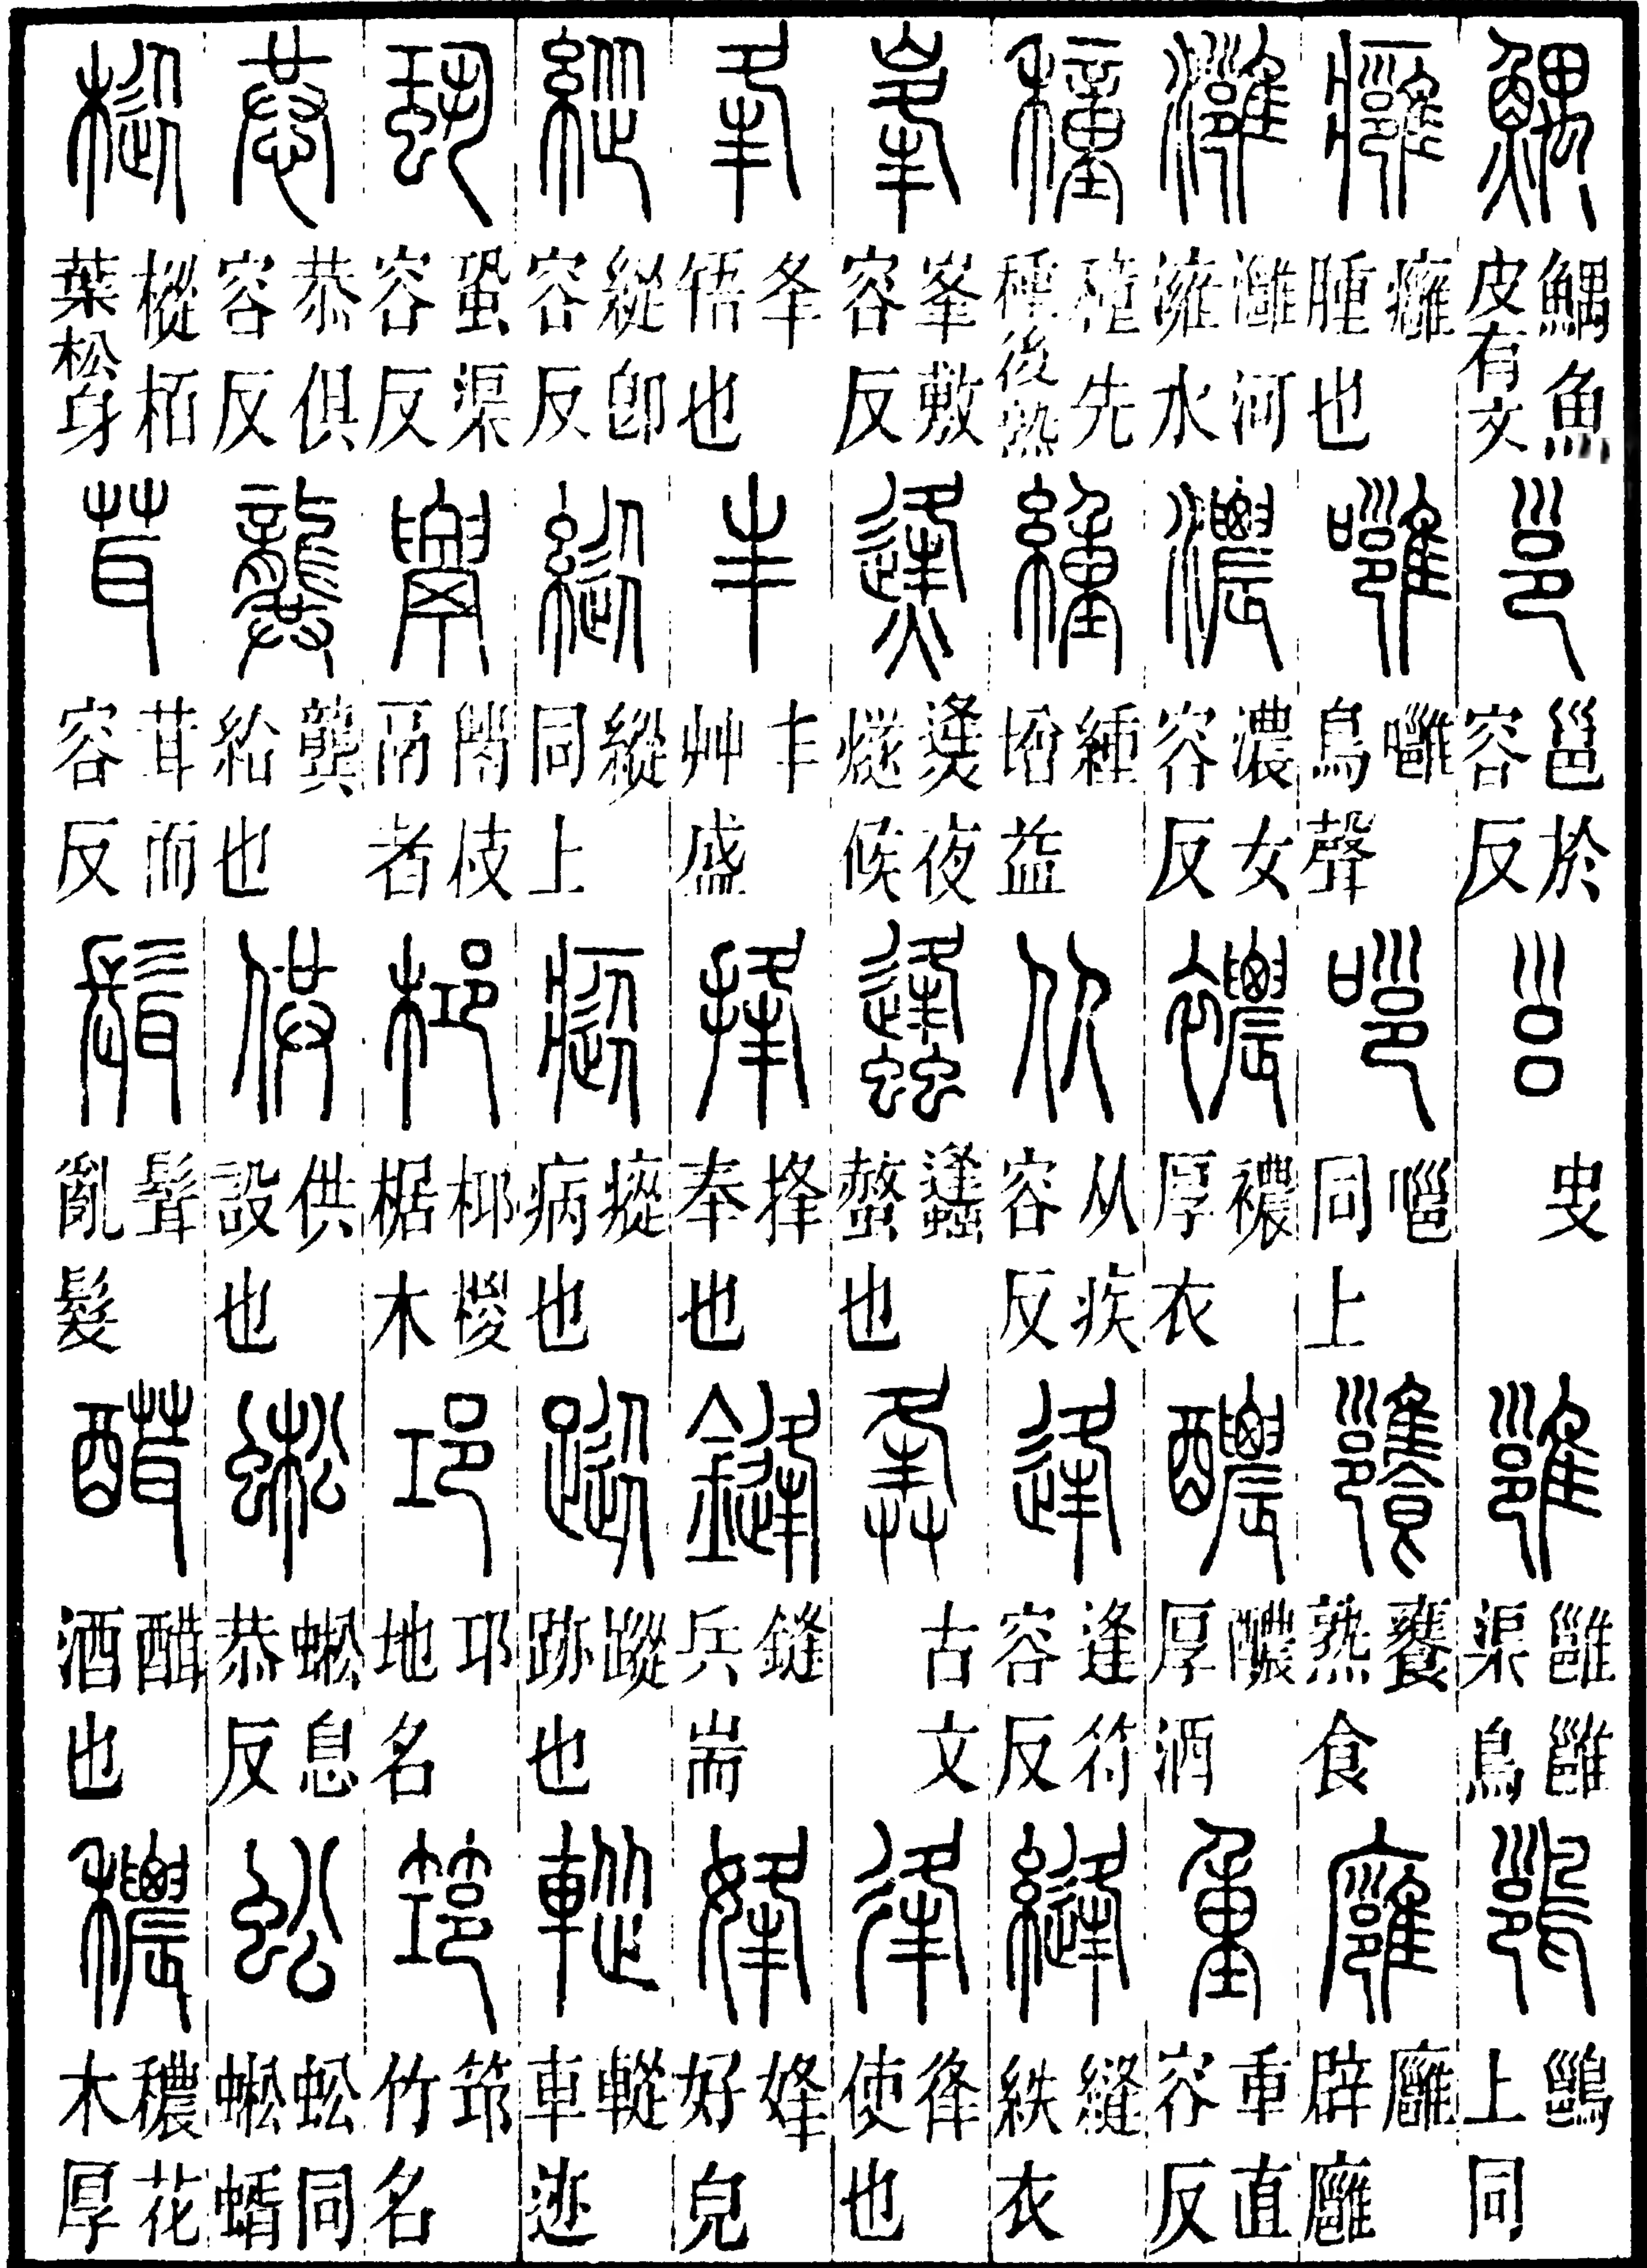 鰅鰅魚皮有文邕邕於容反叓雝雝雝渠鳥上同
癰癰腫也噰噰鳥聲嗈嗈同上饔饔熟食廱廱辟廱
灉灉河澭水濃濃女容反襛襛厚衣醲醲厚酒重重直容反
穜穜先種後熟緟緟增益从从疾容反逢逢符容反縫縫紩衣
峯峯敷容反㷭㷭夜燧候蠭蠭螫也古文㣔㣔使也
夆夆啎也丰丰艸盛捀捀奉也鏠鏠兵耑㛔㛔好皃
緃緃即容反縱縱同上瘲瘲病也蹤蹤跡也車迹
蛩蛩渠容反枝鬲者桏桏椶椐木邛邛地名筇筇竹名
恭恭俱容反龔龔給也供供設也蜙蜙息恭反蚣蚣同蜙蝑
樅樅柏葉松身茸茸而容反髶髶亂髮酒也穠穠花木厚